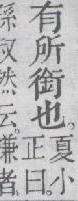 有所銜也。夏小
正曰。
叔然云。嗛者